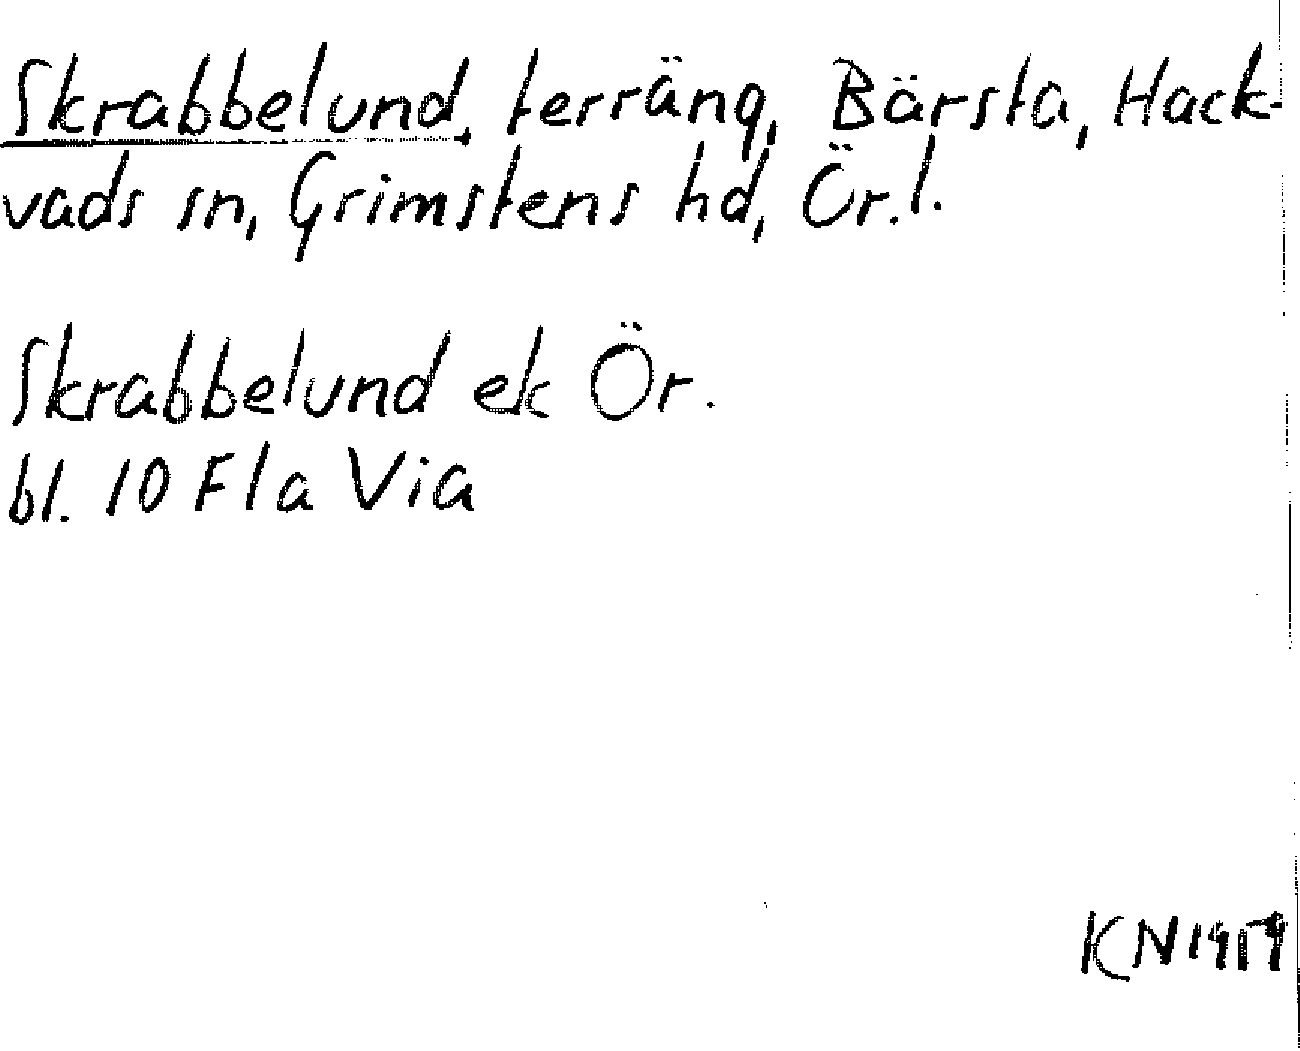 Skrabbelund, terräng, Bärsta, Hack-
vads sn, Grimstens hd, Ör.l.
Skrabbelund ek Ör.
bl. 10 F l a Via
KN 1959